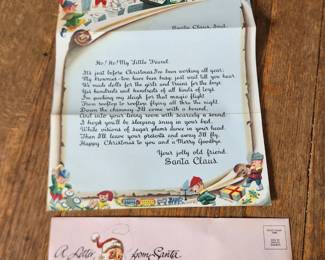 Santa Claus, Ind.
Ho! Ho! My Little Friend
It's just before Christmas, I've been working all year.
My brownies - too have been busy, just wait till you hear
We made dolls for the girls and trains for the boys
Yes hundreds and hundreds of all kinds of toys.
I'm packing my sleigh for that magic flight
From rooftop to rooftop, flying all thru the night.
Down the chimney I'll come with a bound,
And into your living room with scarcely a sound.
I hope you'll be sleeping snug in your bed.
While visions of sugar plums dance in your head.
Then I'll leave your presents and away I'll fly,
Happy Christmas to you and a Merry Goodbye.
Your jolly old friend,
Santa Claus
A Letter from Santa